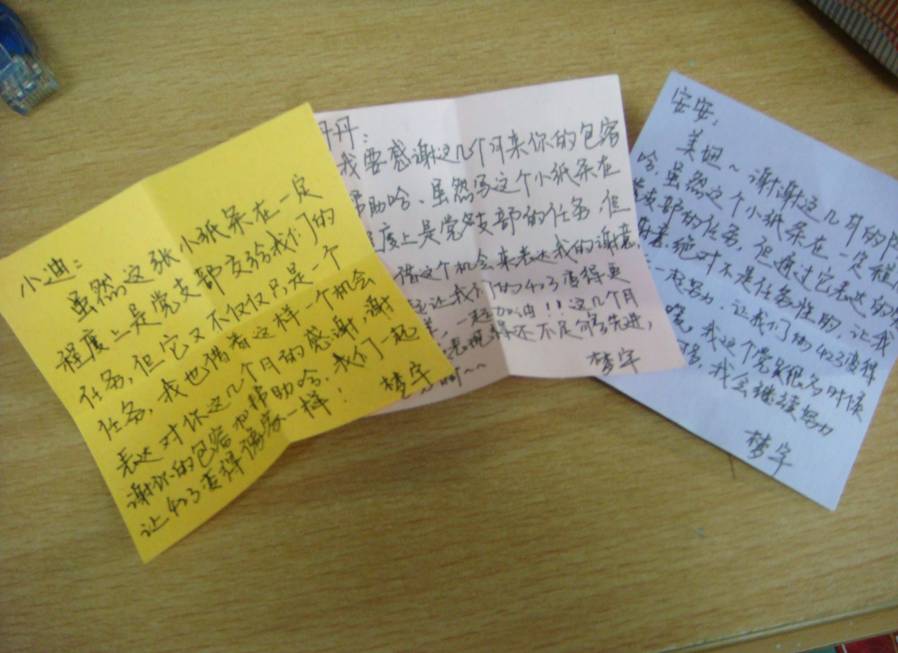 小迪：
虽然这张小纸条在一定
程度上是党支部交给我们的
任务，但它又不仅仅只是一个
任务，我也借着这样一个机会
表达对你这几个月的感谢，谢
谢你的包容和帮助哈，我们一起
让403变得像家一样！
梦宇
丹丹：
我要感谢这几个月来你的包容
帮助哈，虽然写这个小纸条在
程度上是党支部的任务，但
借这个机会来表达我的谢意，
让我们的403变得更
一起加油！！这几个月
表现得还不足够先进，
梦宇
安安：
美妞～谢谢这几月的
哈，虽然这个小纸条在一定程
支部的任务，但通过它表达的
绝对不是任务性的，让我
一起努力，让我们的403变得
我这个党员很多时候
我会继续努力
梦宇